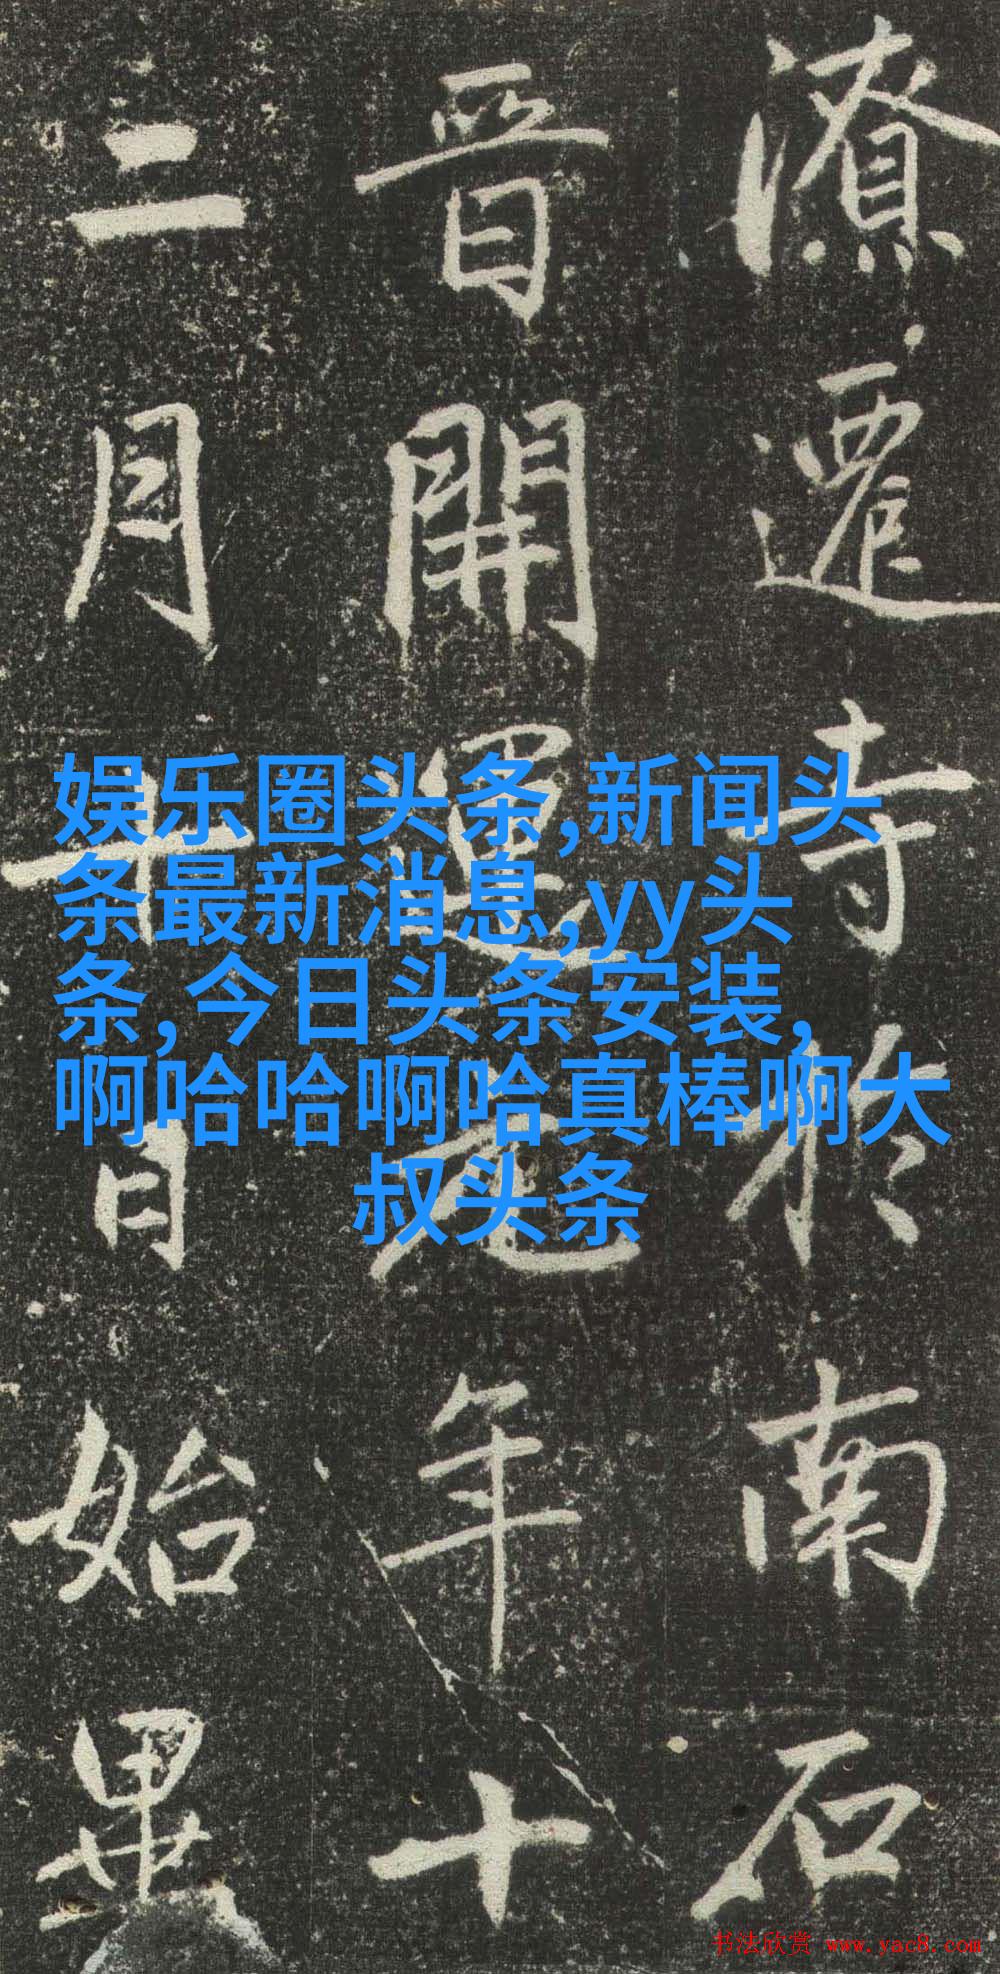 潦還寺於南石
晉開運元年十
二月十日始畢
娱乐圈头条,新闻头
条最新消息,yy头
条,今日头条安装,
啊哈哈啊哈真棒啊大
叔头条
书法欣赏 www.yac8.com